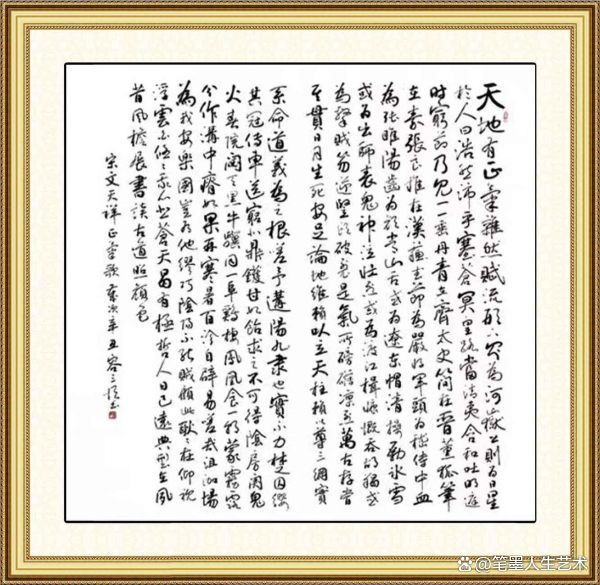 天地有正氣雜然賦流形下為河嶽上則為日星
於人曰浩然沛乎塞蒼冥皇路當清夷含和吐明庭
時窮節乃見一一垂丹青在齊太史簡在晉董狐筆
在秦張良椎在漢蘇武節為嚴將軍頭為嵇侍中血
為張睢陽齒為顏常山舌或為遼東帽清操勵冰雪
或為出師表鬼神泣壯烈或為渡江楫慷慨吞胡羯或
為擊賊笏逆豎頭破裂是氣所磅礴凜烈萬古存當
其貫日月生死安足論地維賴以立天柱賴以尊三綱實
系命道義為之根嗟予遘陽九隸也實不力楚囚纓
其冠傳車送窮北鼎鑊甘如飴求之不可得陰房闃鬼
火春院閟天黑牛驥同一皁雞棲鳳凰食一朝蒙霧露
分作溝中瘠如再寒暑百沴自辟易嗟哉沮洳場
為我安樂國豈有他繆巧陰陽不能賊顧此耿耿在仰視
浮雲白悠悠我心悲蒼天曷有極哲人日已遠典型在夙
昔風檐展書讀古道照顏色
宋文天祥正氣歌歲次辛丑容三書
@笔墨人生艺术